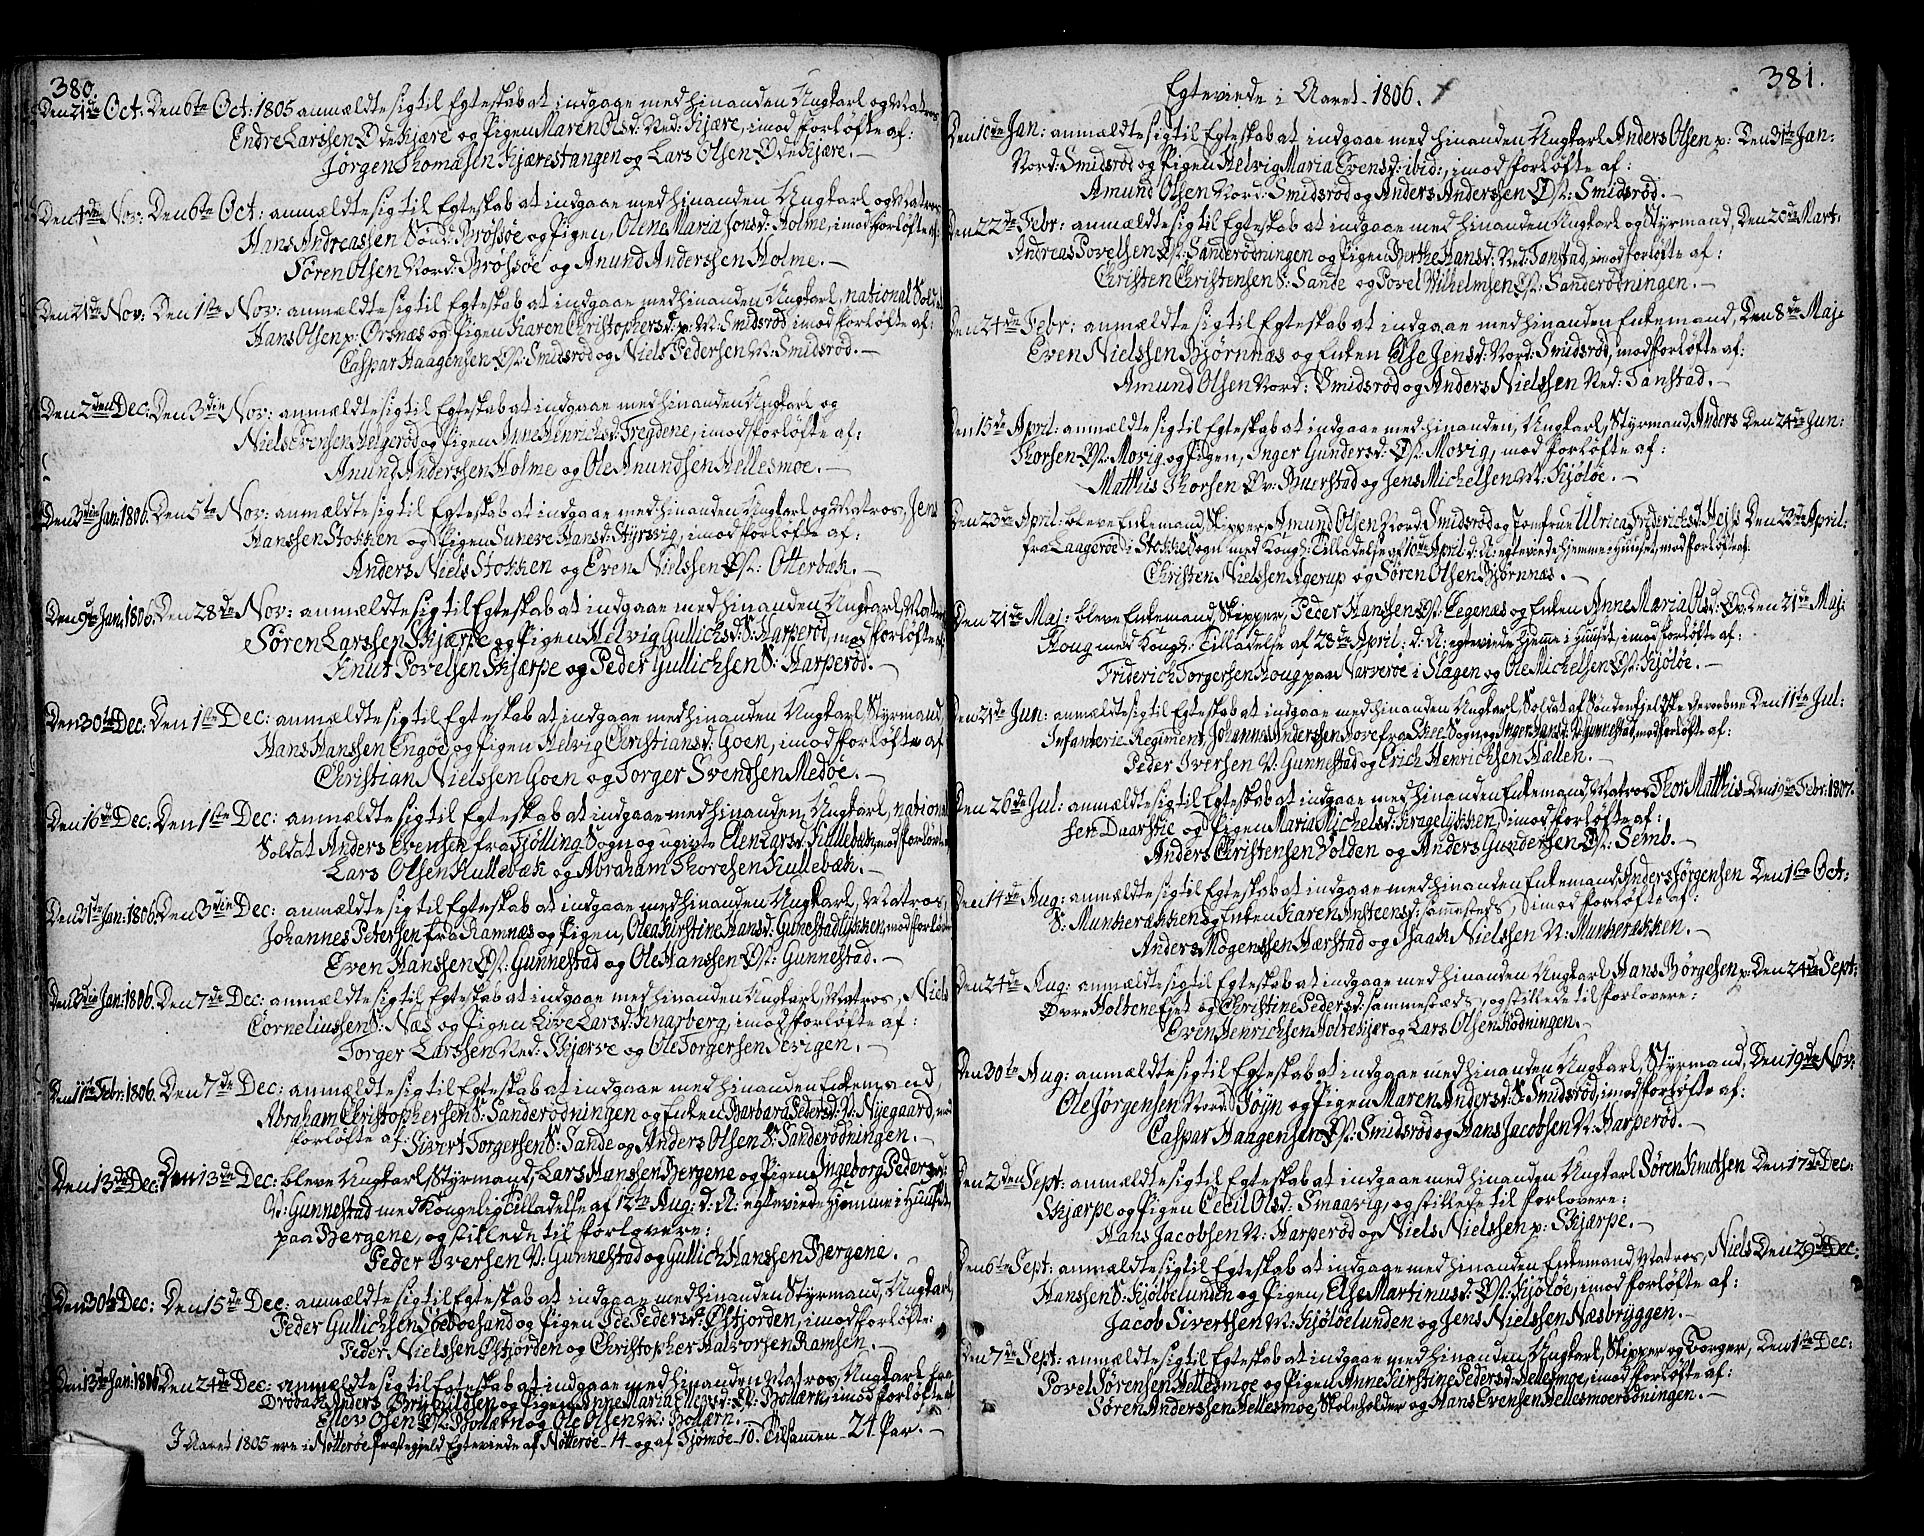 380.
Den 21de Oct: Den 6te Oct: 1805 anmældte sig til Egteskab at indgaae med hinanden Ungkarl og Matros
Endre Larssen Øde Kjære og Pigen Maren Olsd: Ned: Kjære, imod Forløfte af:
Jørgen Thomasen Kjærestangen og Lars Olsen Øde Kjære. —
Den 4de Nov: Den 6te Oct: anmældte sig til Egteskab at indgaae med hinanden Ungkarl og Matros
Hans Andreassen Sønd: Brøssøe og Pigen, Olene Maria Jonsd: Holme, imod Forløfte af:
Søren Olsen Nord: Brøssøe og Anund Anderssen Holme. —
Den 21de Nov: Den 1ste Nov: anmældte sig til Egteskab at indgaae med hinanden Ungkarl, national Sold:
Hans Olsen p: Orsnæs og Pigen Karen Christophersd: p: V: Smidsrød imod Forløfte af:
Caspar Haagensen Øst: Smidsrød og Niels Pedersen V: Smidsrød. —
Den 2den Dec: Den 3die Nov: anmældte sig til Egteskab at indgaae med hinanden Ungkarl og
Niels Evensen Helgerød og Pigen Anne Henrichsd: Tregdene, imod Forløfte af:
Anund Anderssen Holme og Ole Anundsen Hellesmoe. —
Den 3die Jan: 1806. Den 5te Nov: anmældte sig til Egteskab at indgaae med hinanden Ungkarl og Matros, Jens
Hanssen Stokken og Pigen Suneve Hansd: Styrsvig, imod Forløfte af:
Anders Niels Stokken og Even Nielssen Øst: Otterbæk. —
Den 9de Jan: 1806. Den 28de Nov: anmældte sig til Egteskab at indgaae med hinanden Ungkarl, Matros
Søren Larssen Skjærpe og Pigen Helvig Gullichsd: S: Harperød, imod Forløfte af:
Knut Povelsen Skjærpe og Peder Gullichsen S: Harperød. —
Den 30te Dec: Den 1ste Dec: anmældte sig til Egteskab at indgaae med hinanden Ungkarl, Styrmand,
Hans Hanssen Engøe, og Pigen Helvig Christiansd: Goen, imod Forløfte af
Christian Nielssen Goen og Torger Svendsen Medøe. —
Den 16de Dec: Den 1ste Dec: anmældte sig til Egteskab at indgaae med hinanden, Ungkarl, national
Soldat Anders Evensen fra Fjölling Sogn og ugivte Elen Larsd: Kullebæk, imod Forløfte
Lars Olsen Kullebæk og Abraham Thoresen Kullebæk. —
Den 21te Jan: 1806. Den 3die Dec: anmældte sig til Egteskab at indgaae med hinanden Ungkarl, Matros,
Johannes Petersen fra Ramnæs og Pigen, Olea Kirstine Hansd: Gunestadløkken, imod Forløfte
Even Hanssen Øst: Gunnestad og Ole Hanssen Øst: Gunnestad. —
Den 3die Jan: 1806. Den 7de Dec: anmældte sig til Egteskab at indgaae med hinanden Ungkarl, Matros, Niels
Corneliussen S: Næs og Pigen Live Larsd: Knarberg, imod Forløfte af:
Torger Larssen Ned: Skjærve og Ole Torgersen Jevigen. —
Den 11te Febr: 1806. Den 7de Dec: anmældte sig til Egteskab at indgaae med hinanden Enkemand,
Abraham Christophersen S: Sanderødningen og Enken Barbara Pedersd: V: Nyegaard, imod
Forløfte af: Sivert Torgersen S: Sande og Anders Olsen S: Sanderødningen. —
Den 13de Dec: Den 13de Dec: bleve Ungkarl, Styrmand, Lars Hanssen Bergene og Pigen Ingeborg Pedersd:
V: Gunnestad med Kongelig Tilladelse af 12te Aug: d: A: egteviede hjemme i Huuset
paa Bergene, og stillede til Forlovere:
Peder Iversen V: Gunnestad og Gullich Hanssen Bergene. —
Den 30te Dec: Den 15de Dec: anmældte sig til Egteskab at indgaae med hinanden Styrmand, Ungkarl,
Peder Gullichsen Sbeboesand og Pigen Ide Pedersd: Østjorden, imod Forløfte:
Peder Nielssen Østjorden og Christopher Halvorsen Ramsen. —
Den 13de Jan: 1806 Den 24de Dec: anmældte sig til Egteskab at indgaae med hinanden Matros, Ungkarl fra
Drøbach Anders Brynildsen og Pigen Anne Maria Ellevsd: Øst: Bollærn, imod Forløfte af
Ellev Olsen Øst: Bollærn og Ole Olsen V: Bollærn. —
I Aaret 1805 ere i Nøtterøe Præstegjeld Egteviede af Nøtterøe 14 og af Tjømøe 10. Tilsammen 24 Par. —
381.
Egteviede i Aaret 1806.
Den 10de Jan: anmældte sig til Egteskab at indgaae med hinanden Ungkarl Anders Olsen p: Den 31te Jan:
Nord: Smidsrød og Pigen Helvig Maria Evensd: ibid:, imod Forløfte af:
Amund Olsen Nord: Smidsrød og Anders Anderssen Øst: Smidsrød. —
Den 22de Febr: anmældte sig til Egteskab at indgaae med hinanden Ungkarl og Styrmand, Den 20de Mart:
Andreas Povelsen Øst: Sanderødningen og Pigen Berthe Hansd: Ned: Tanstad, imod Forløfte af:
Christen Christensen S: Sande og Povel Vilhelmsen Øst: Sanderødningen. —
Den 24de Febr: anmældte sig til Egteskab at indgaae med hinanden Enkemand, Den 8de Maj:
Even Nielssen Bjørnnæs og Enken Else Jensd: Nord: Smidsrød, imod Forløfte af:
Amund Olsen Nord: Smidsrød og Anders Nielssen Ned: Tanstad. —
Den 15de April: anmældte sig til Egteskab at indgaae med hinanden, Ungkarl, Styrmand, Anders Den 24de Jun:
Thorsen Øst: Movig og Pigen, Inger Gundersd: Øst: Movig, imod Forløfte af:
Matthis Thorsen Øv: Buerstad og Jens Michelsen V: Kjøløe. —
Den 23de April: bleve Enkemand, Skipper, Amund Olsen Nord: Smidsrød og Jomfrue Ulrica Friderichsd: Heiss Den 23de April:
fra Laagerøe i Stokke Sogn med Kongl: Tilladelse af 10de April: d: A: egteviede hjemme i Huuset, imod Forløfte af:
Christen Nielssen Agerup og Søren Olsen Bjørnnæs. —
Den 21de Maj: bleve Enkemand, Skipper, Peder Hanssen Øst: Tegenæs og Enken Anne Maria Olsd: Øv: Den 21de Maj:
Houg med Kongl: Tilladelse af 23de April: d: A: egteviede hjemme i Huuset, imod Forløfte af:
Friderich Torgersen Houg paa Narverøe i Slagen og Ole Michelsen Øst: Kjøløe. —
Den 21de Jun: anmældte sig til Egteskab at indgaae med hinanden Ungkarl Soldat af Søndenfjeldske Gevorbne Den 11te Jul:
Infanterie Regiment, Johannes Anderssen Hove fra Skee Sogn og Inger Hansd: V: Gunnestad, imod Forløfte af:
Peder Iversen V: Gunnestad og Erich Henrichsen Hælleh. —
Den 26de Jul: anmældte sig til Egteskab at indgaae med hinanden Enkemand, Matros Thor Matthis- Den 19de Febr: 1807.
sen Daarstie og Pigen Maria Michelsd: Krageløkken, imod Forløfte af:
Anders Christensen Volden og Anders Gundersen Øst: Semb. —
Den 14de Aug: anmældte sig til Egteskab at indgaae med hinanden Enkemand Anders Jørgensen Den 1ste Oct:
S: Munkerækken og Enken Karen Ansteensd: sammesteds, imod Forløfte af:
Anders Mogenssen Hærstad og Isaach Nielssen V: Munkerækken. —
Den 24de Aug: anmældte sig til Egteskab at indgaae med hinanden Ungkarl Hans Børgesen p: Den 24de Sept:
Øvre Holtene Eget og Christine Pedersd: sammestæds, og stillede til Forlovere:
Even Henrichsen Holtekjær og Lars Olsen Rødningen. —
Den 30te Aug: anmældte sig til Egteskab at indgaae med hinanden Ungkarl, Styrmand, Den 19de Nov:
Ole Jørgensen Nord: Føyn og Pigen Maren Andersd: S: Smidsrød, imod Forløfte af:
Caspar Haagensen Øst: Smidsrød og Hans Jacobsen V: Harperød. —
Den 2den Sept: anmældte sig til Egteskab at indgaae med hinanden Ungkarl Søren Knutsen Den 17de Dec:
Skjærpe og Pigen Cecil Olsd: Smaavig, og stillede til Forlovere:
Hans Jacobsen V: Harperød og Niels Nielssen p: Skjærpe. —
Den 6te Sept: anmældte sig til Egteskab at indgaae med hinanden Enkemand, Matros, Niels Den 29de Dec:
Hanssen S: Kjøløelunden og Pigen, Else Martinusd: Øst: Kjøløe, imod Forløfte af:
Jacob Sivertsen V: Kjøløelunden og Jens Nielssen Næsbryggen. —
Den 7de Sept: anmældte sig til Egteskab at indgaae med hinanden, Ungkarl, Skipper og Borger, Den 1ste Dec:
Povel Sørensen Hellesmoe og Pigen Anne Kirstine Pedersd: Hellesmoe, imod Forløfte af:
Søren Anderssen Hellesmoe, Skoleholder og Hans Evensen Hellesmoerødningen. —